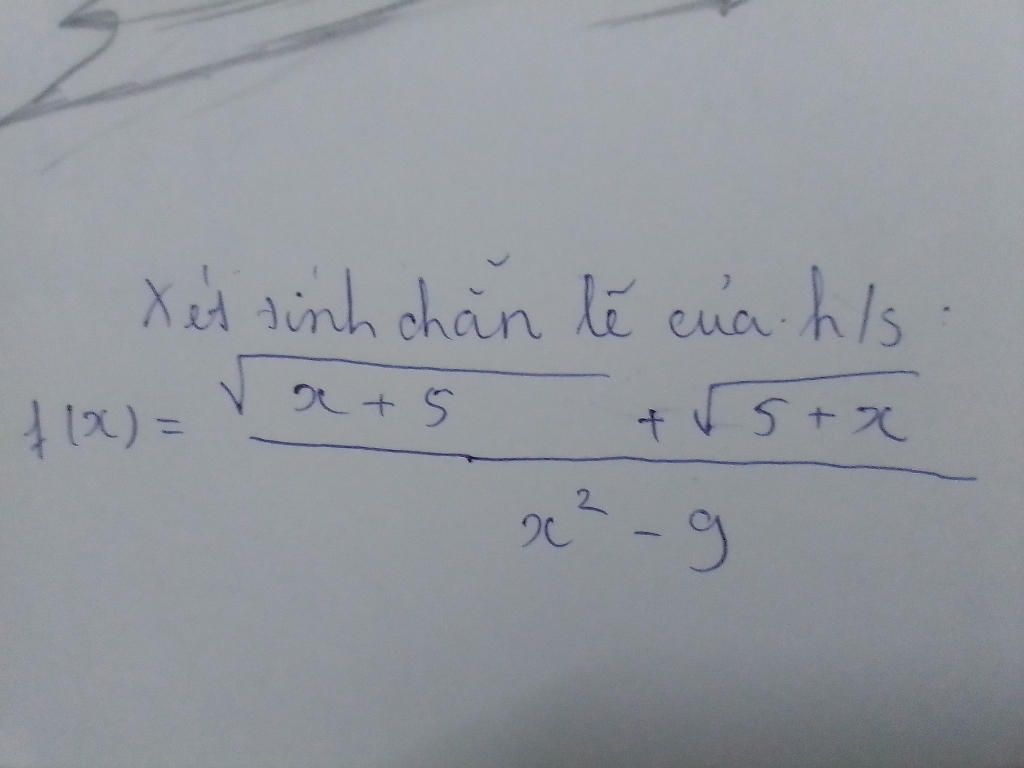 Xét tính chẵn lẽ của h/s:
f(x) = \frac{\sqrt{x+5} + \sqrt{5+x}}{x^2 - 9}